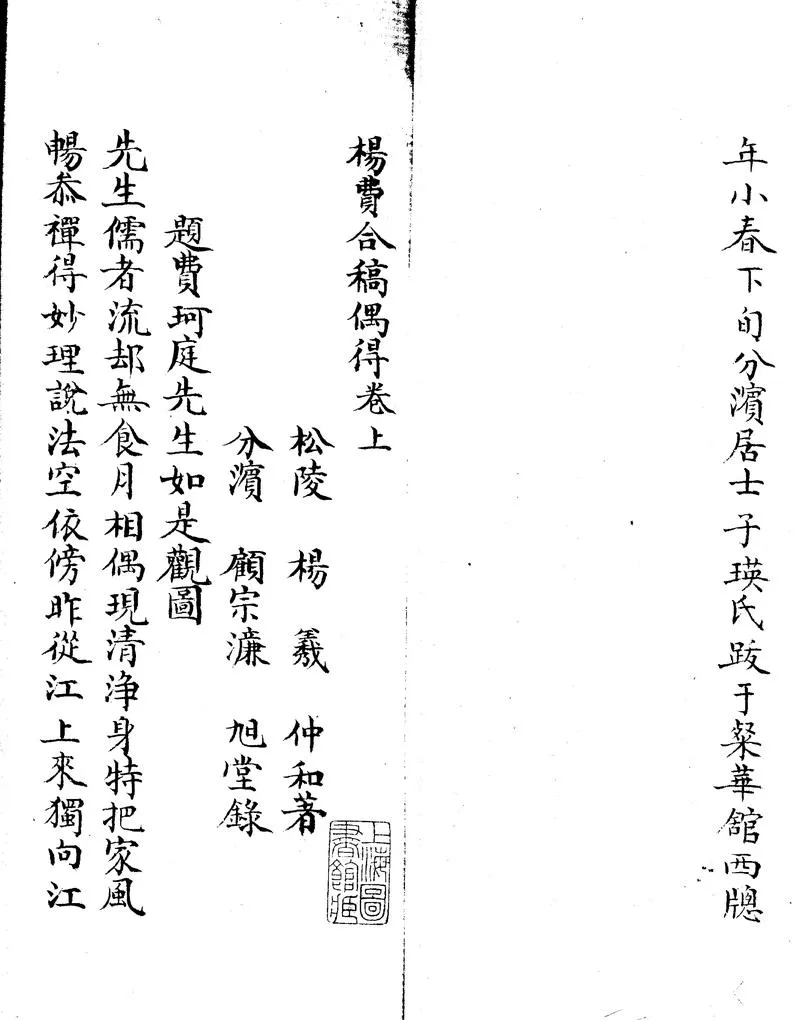 年小春下旬分濱居士子瑛氏跋于粲華舘西牕
楊費合稿偶得卷上
松陵 楊 羲 仲和著
分濱 顧宗濂 旭堂錄
題費珂庭先生如是觀圖
先生儒者流却無食月相偶現清浄身特把家風
暢叅禪得妙理說法空依傍昨從江上來獨向江
上海圖
書館藏